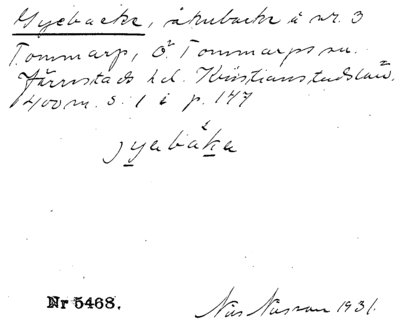 Gyebacke, åkerbacke å nr. 3
Tommarp, Ö. Tommarps sn.
Järrestads hd. Kristianstads län.
400 m. S. 1 i p. 147
jyebåka
Nr 5468.
Nils Nilsson 1931.